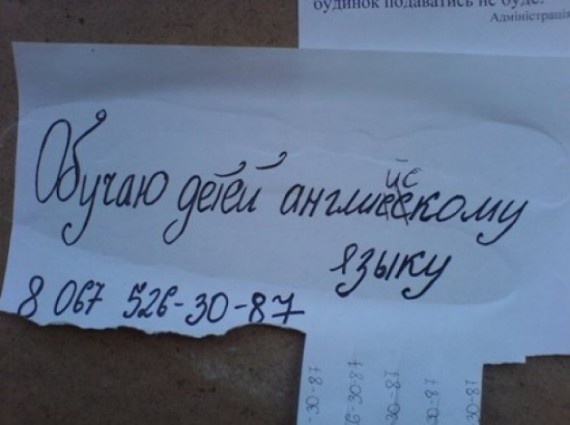 будинок подаватись не буде.
Адміністрація
Обучаю детей английскому
языку
8 067 526-30-87
-30-87
6-30-87
30-87
0-87
30-87